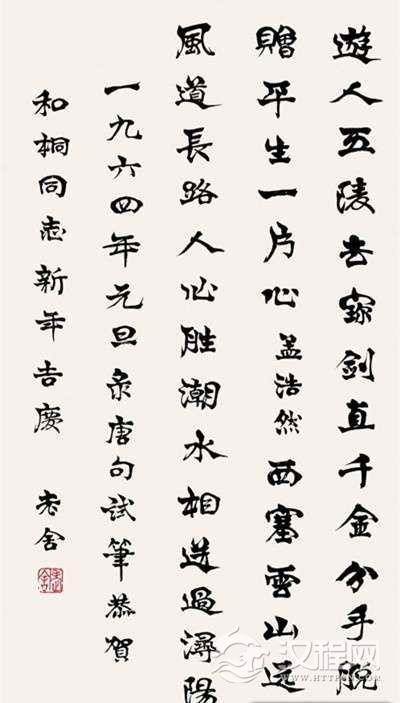 遊人五陵去寳劍直千金分手脫
贈平生一片心孟浩然西塞雲山远
風道長路人心胜潮水相送過潯陽
一九六四年元旦录唐句試筆恭賀
和桐同志新年吉慶 老舍
汉程网